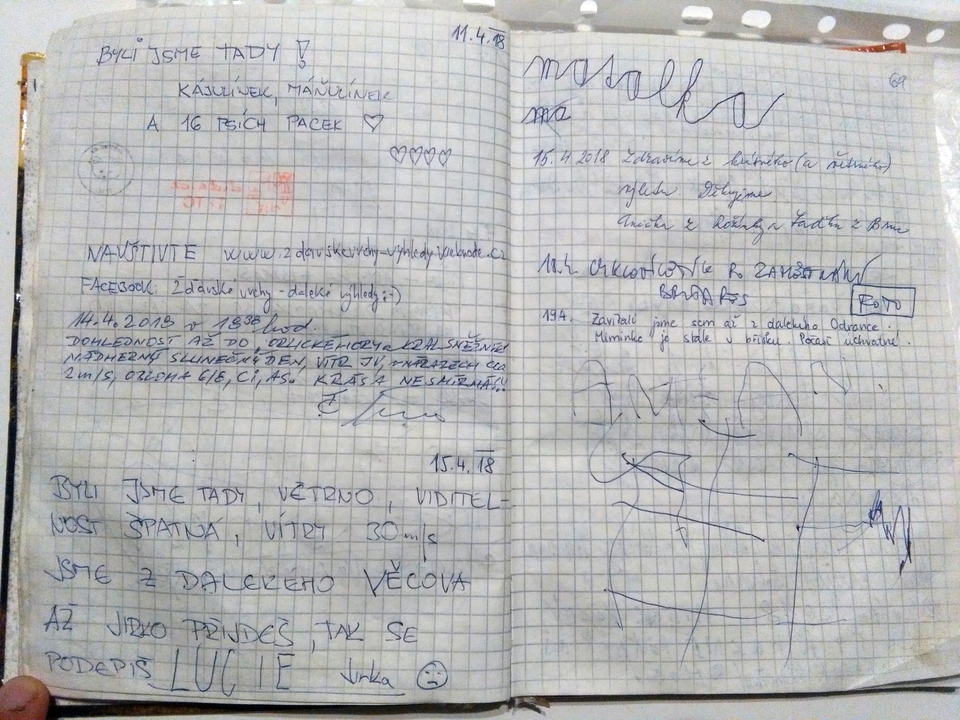 11.4.18
BYLI JSME TADY!
KÁJULÍNEK, MÁŇULÍNEK
A 16 PSÍCH PACEK ♡
♡♡♡♡
NAVŠTIVTE www.zdarskevrchy-vyhledy
FACEBOOK: Žďárské vrchy - daleké výhledy :-)
14.4.2018 v 19 hod.
DOHLEDNOST AŽ DO ORLICKÉ HORY a KRÁL. SNĚŽNÍK
NÁDHERNÝ SLUNEČNÝ DEN, VÍTR JV, v NÁRAZECH
2 m/s, OBLOHA 6/8, Ci, As. KRÁSA NESMÍRNÁ!
15.4.18
BYLI JSME TADY, VĚTRNO, VIDITEL-
NOST ŠPATNÁ, VÍTRY 30 m/s
JSME Z DALEKÉHO VĚCOVA
AŽ JIRKO PŘIJDEŠ, TAK SE
PODEPIŠ LUCIE Jirka
69
masalka
ma
15.4 2018 Zdravíme z (a
výletu Děkujeme
Anička z a z Brna
18.4.
FOTO
19.4. Zavítali jsme sem až z dalekého Odrance!
Miminko je stále v bříšku. Počasí úchvatné!